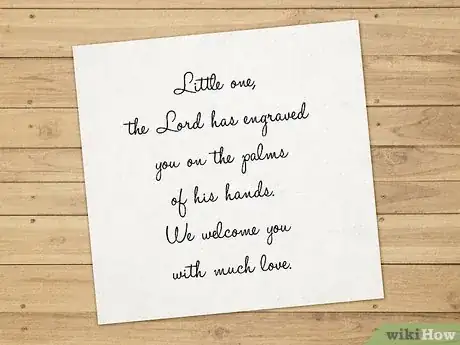 Little one,
the Lord has engraved
you on the palms
of his hands.
We welcome you
with much love.
wikiHow